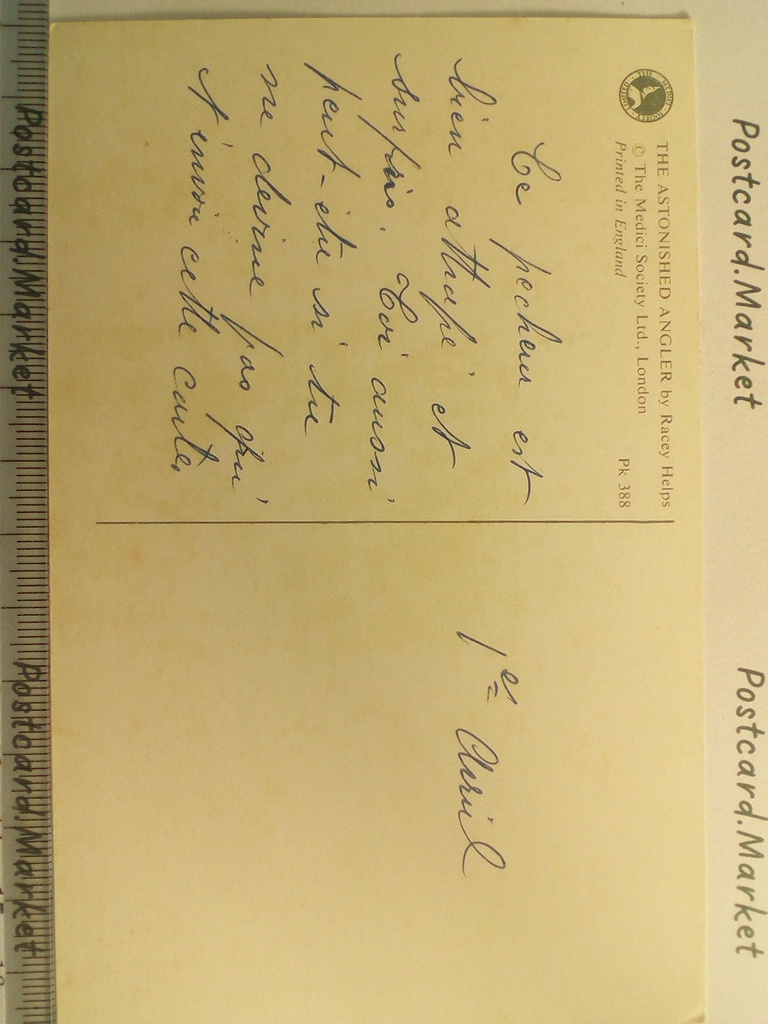 Postcard.Market Postcard.Market
THE ASTONISHED ANGLER by Racey Helps
© The Medici Society Ltd., London Pk 388
Printed in England
THE MEDICI SOCIETY
Ce pecheur est
bien attrapé et
surpris. Toi aussi
peut-être si tu
ne devine pas qui
t'envoi cette carte.
1er Avril
Postcard.Market Postcard.Market